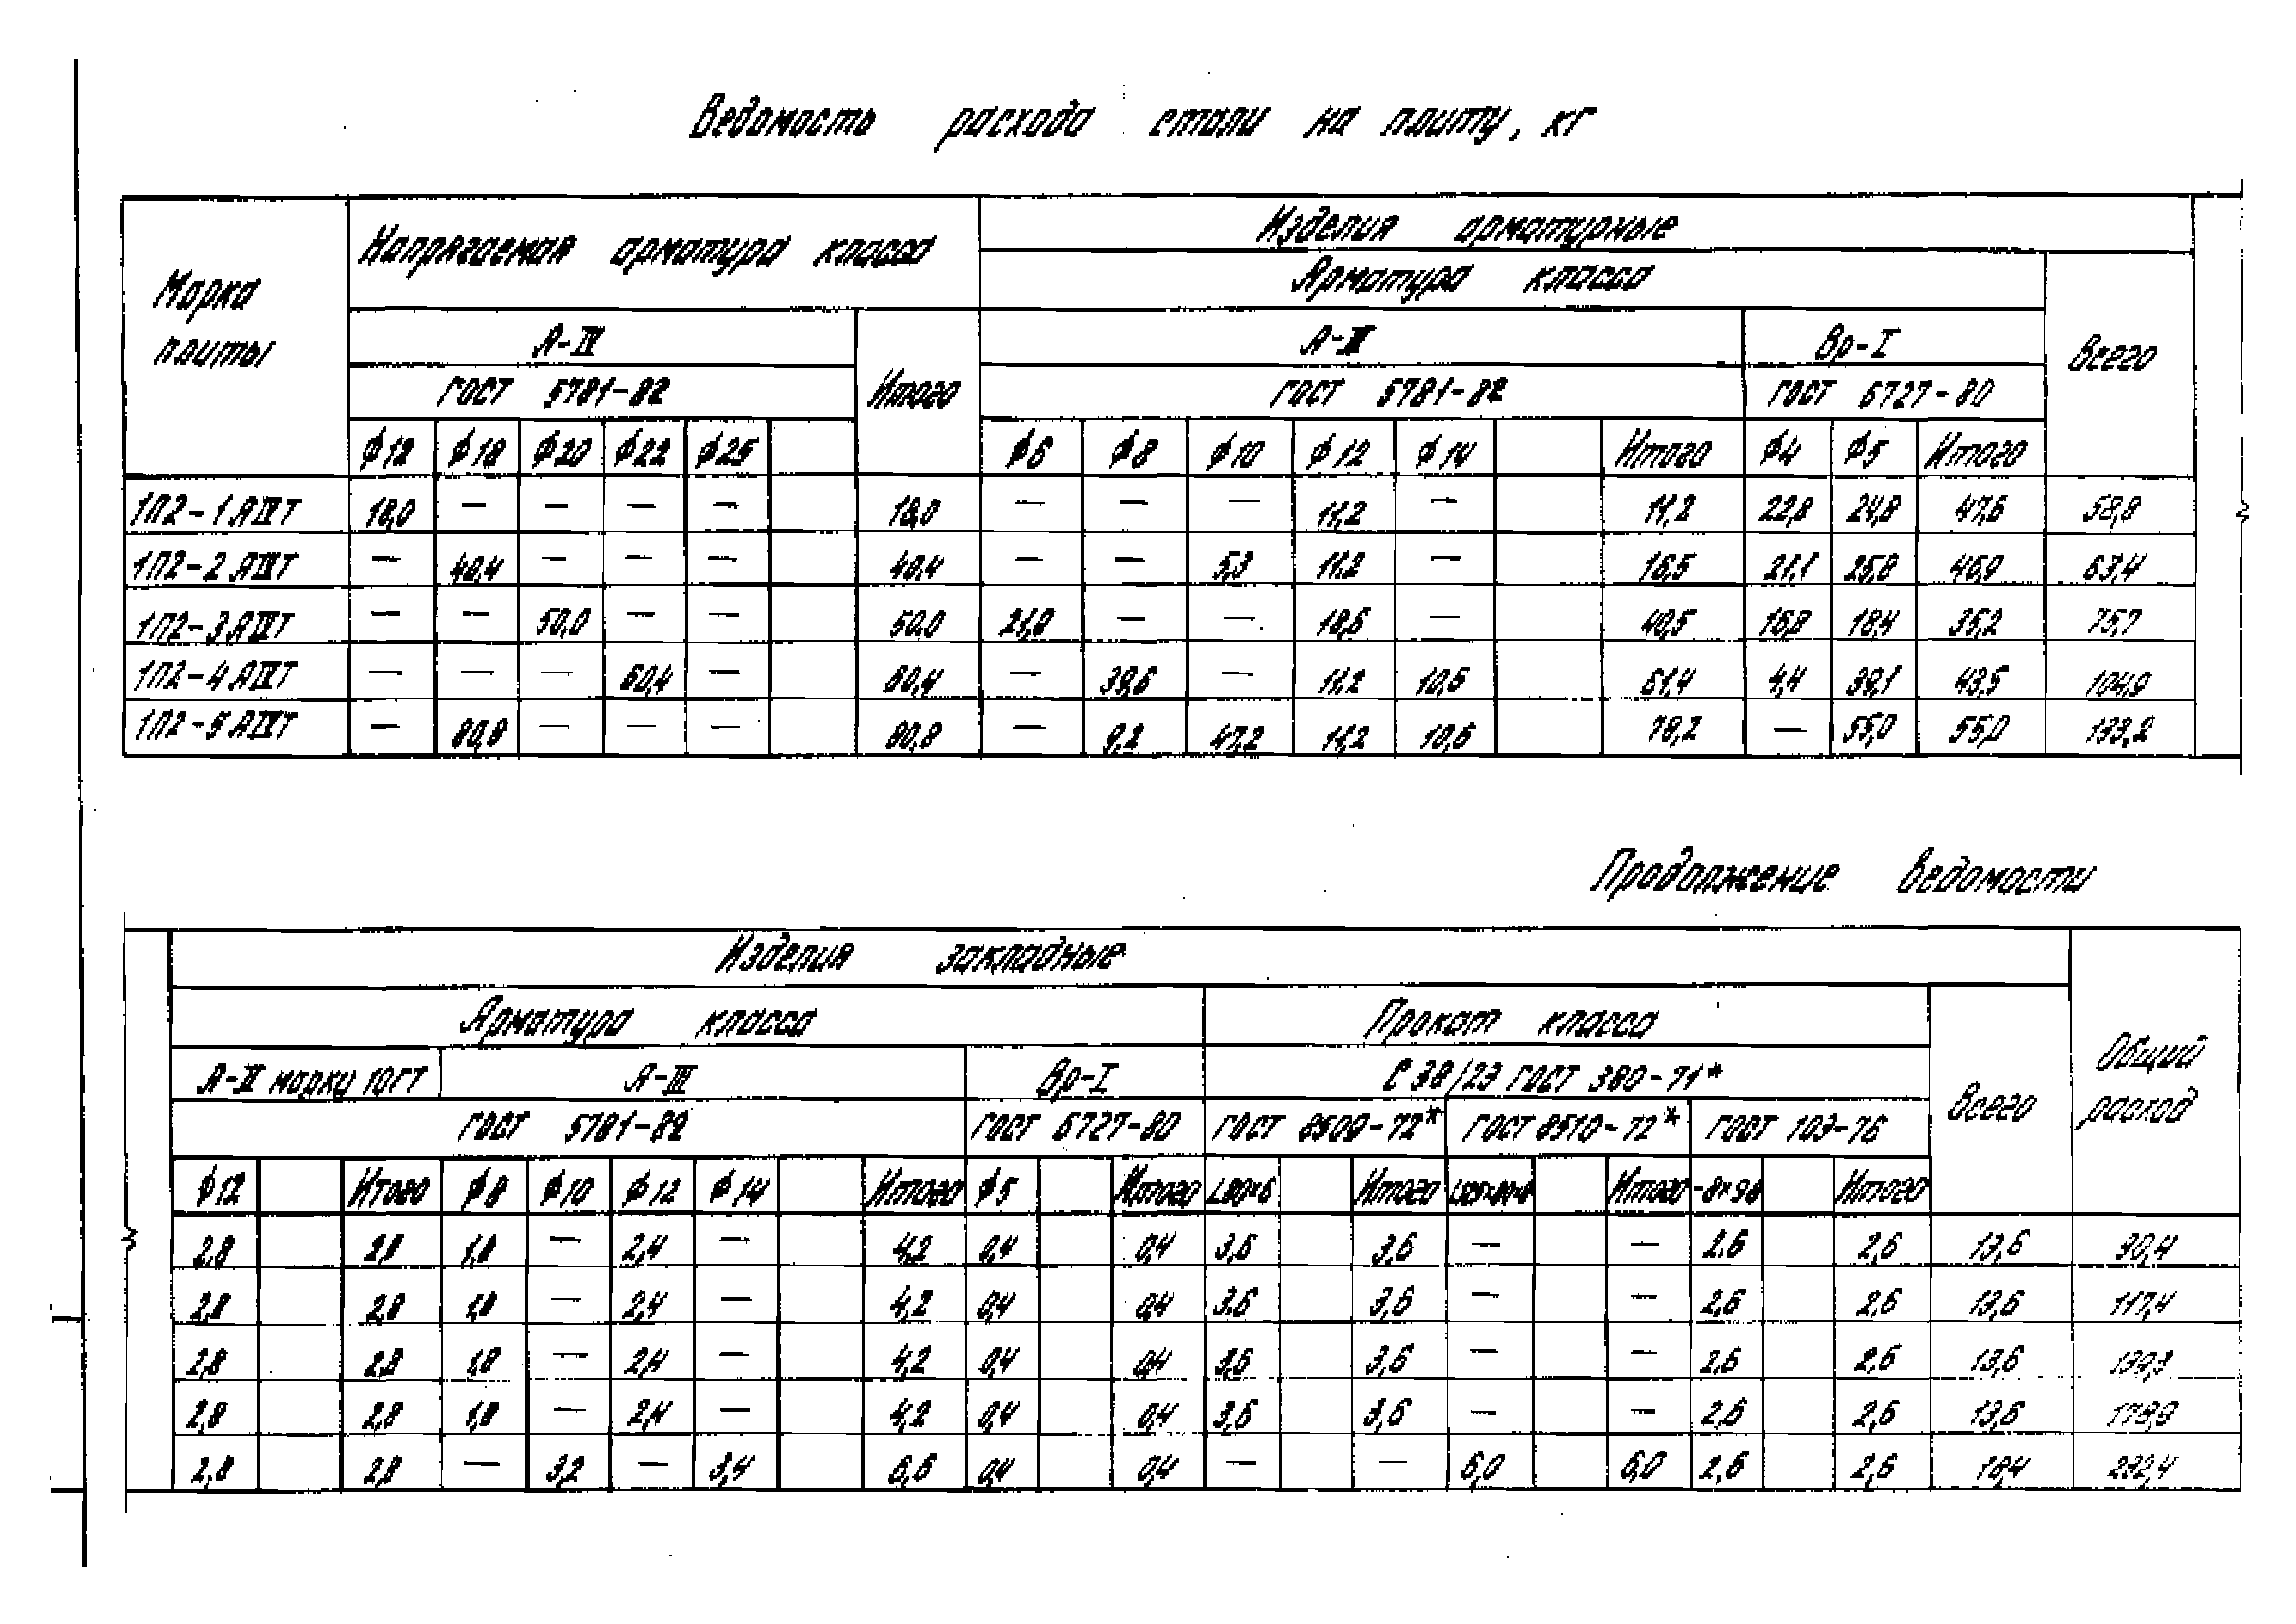 Ведомость расхода стали на плиту, кг
Марка плиты Напрягаемая арматура класса Изделия арматурные
Арматура класса Всего
А-IV Итого А-III Вр-I
ГОСТ 5781-82 ГОСТ 5781-82 ГОСТ 6727-80
ϕ12 ϕ18 ϕ20 ϕ22 ϕ25 ϕ6 ϕ8 ϕ10 ϕ12 ϕ14 Итого ϕ4 ϕ5 Итого
1П2-1АIVТ 18,0 — — — — 18,0 — — — 11,2 — 11,2 22,8 24,8 47,6 58,8
1П2-2АIVТ — 40,4 — — — 40,4 — — 5,3 11,2 — 16,5 21,1 25,8 46,9 63,4
1П2-3АIVТ — — 50,0 — — 50,0 21,9 — — 18,6 — 40,5 16,8 18,4 35,2 75,7
1П2-4АIVТ — — — 60,4 — 60,4 — 39,6 — 11,2 10,6 61,4 4,4 39,1 43,5 104,9
1П2-5АIVТ — 80,8 — — — 80,8 — 9,2 47,2 11,2 10,6 78,2 — 55,0 55,0 133,2
Продолжение ведомости
Изделия закладные Общий расход
Арматура класса Прокат класса Всего
А-II марки 10ГТ А-III Вр-I С 38/23 ГОСТ 380-71*
ГОСТ 5781-82 ГОСТ 6727-80 ГОСТ 8509-72* ГОСТ 8510-72* ГОСТ 103-76
ϕ12 Итого ϕ8 ϕ10 ϕ12 ϕ14 Итого ϕ5 Итого L80×6 Итого Итого Итого
2,8 2,8 1,8 — 2,4 — 4,2 0,4 0,4 3,6 3,6 — — 2,6 2,6 13,6 90,4
2,8 2,8 1,8 — 2,4 — 4,2 0,4 0,4 3,6 3,6 — — 2,6 2,6 13,6 117,4
2,8 2,8 1,8 — 2,4 — 4,2 0,4 0,4 3,6 3,6 — — 2,6 2,6 13,6 139,3
2,8 2,8 1,8 — 2,4 — 4,2 0,4 0,4 3,6 3,6 — — 2,6 2,6 13,6 178,9
2,8 2,8 — 3,2 — 3,4 6,6 0,4 0,4 — — 6,0 6,0 2,6 2,6 18,4 232,4